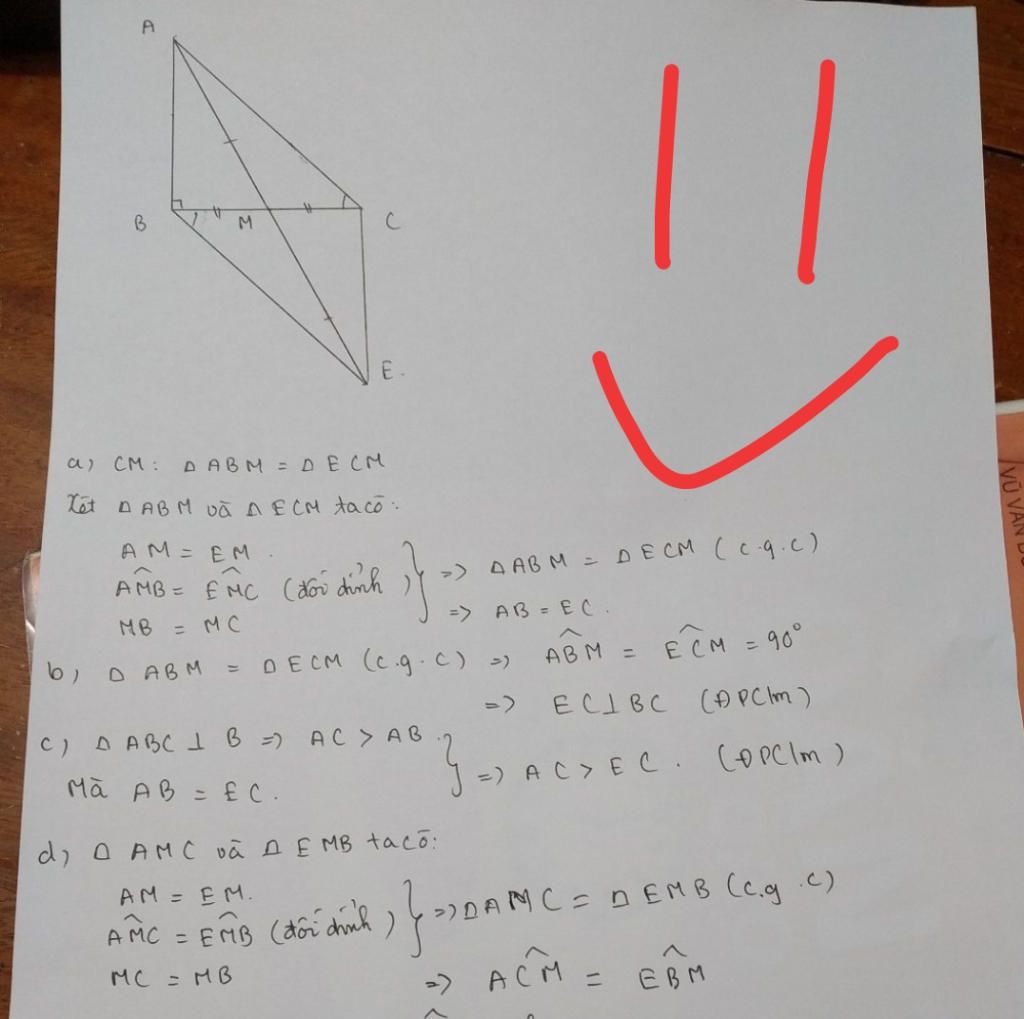 A
B
M
C
E.
a) CM: Δ ABM = Δ ECM
Xét Δ ABM và Δ ECM ta có:
AM = EM.
AM̂B = EM̂C (đối đỉnh) } => ΔABM = ΔECM (c.g.c)
MB = MC => AB = EC.
b) Δ ABM = ΔECM (c.g.c) => AB̂M = EĈM = 90°
=> EC⊥BC (ĐPCIm)
c) Δ ABC ⊥ B => AC > AB
Mà AB = EC. } => AC > EC. (ĐPCIm)
d) Δ AMC và Δ EMB ta có:
AM = EM.
AM̂C = EM̂B (đối đỉnh) } => ΔAMC = ΔEMB (c.g.c)
MC = MB
=> AĈM = EB̂M
VŨ VĂN